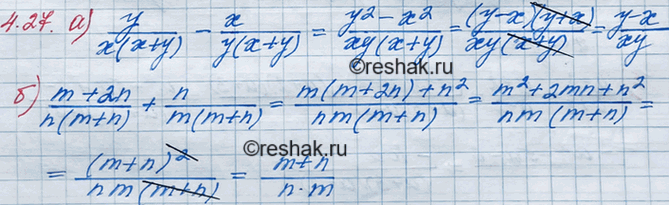 4.27. а) y/(x(x+y)) - x/(y(x+y)) = (y² - x²)/(xy(x+y)) = ((y-x)(y+x))/(xy(x+y)) = (y-x)/(xy)
б) (m+2n)/(n(m+n)) + n/(m(m+n)) = (m(m+2n)+n²)/(nm(m+n)) = (m²+2mn+n²)/(nm(m+n)) =
©reshak.ru
= (m+n)²/(nm(m+n)) = (m+n)/(n·m)